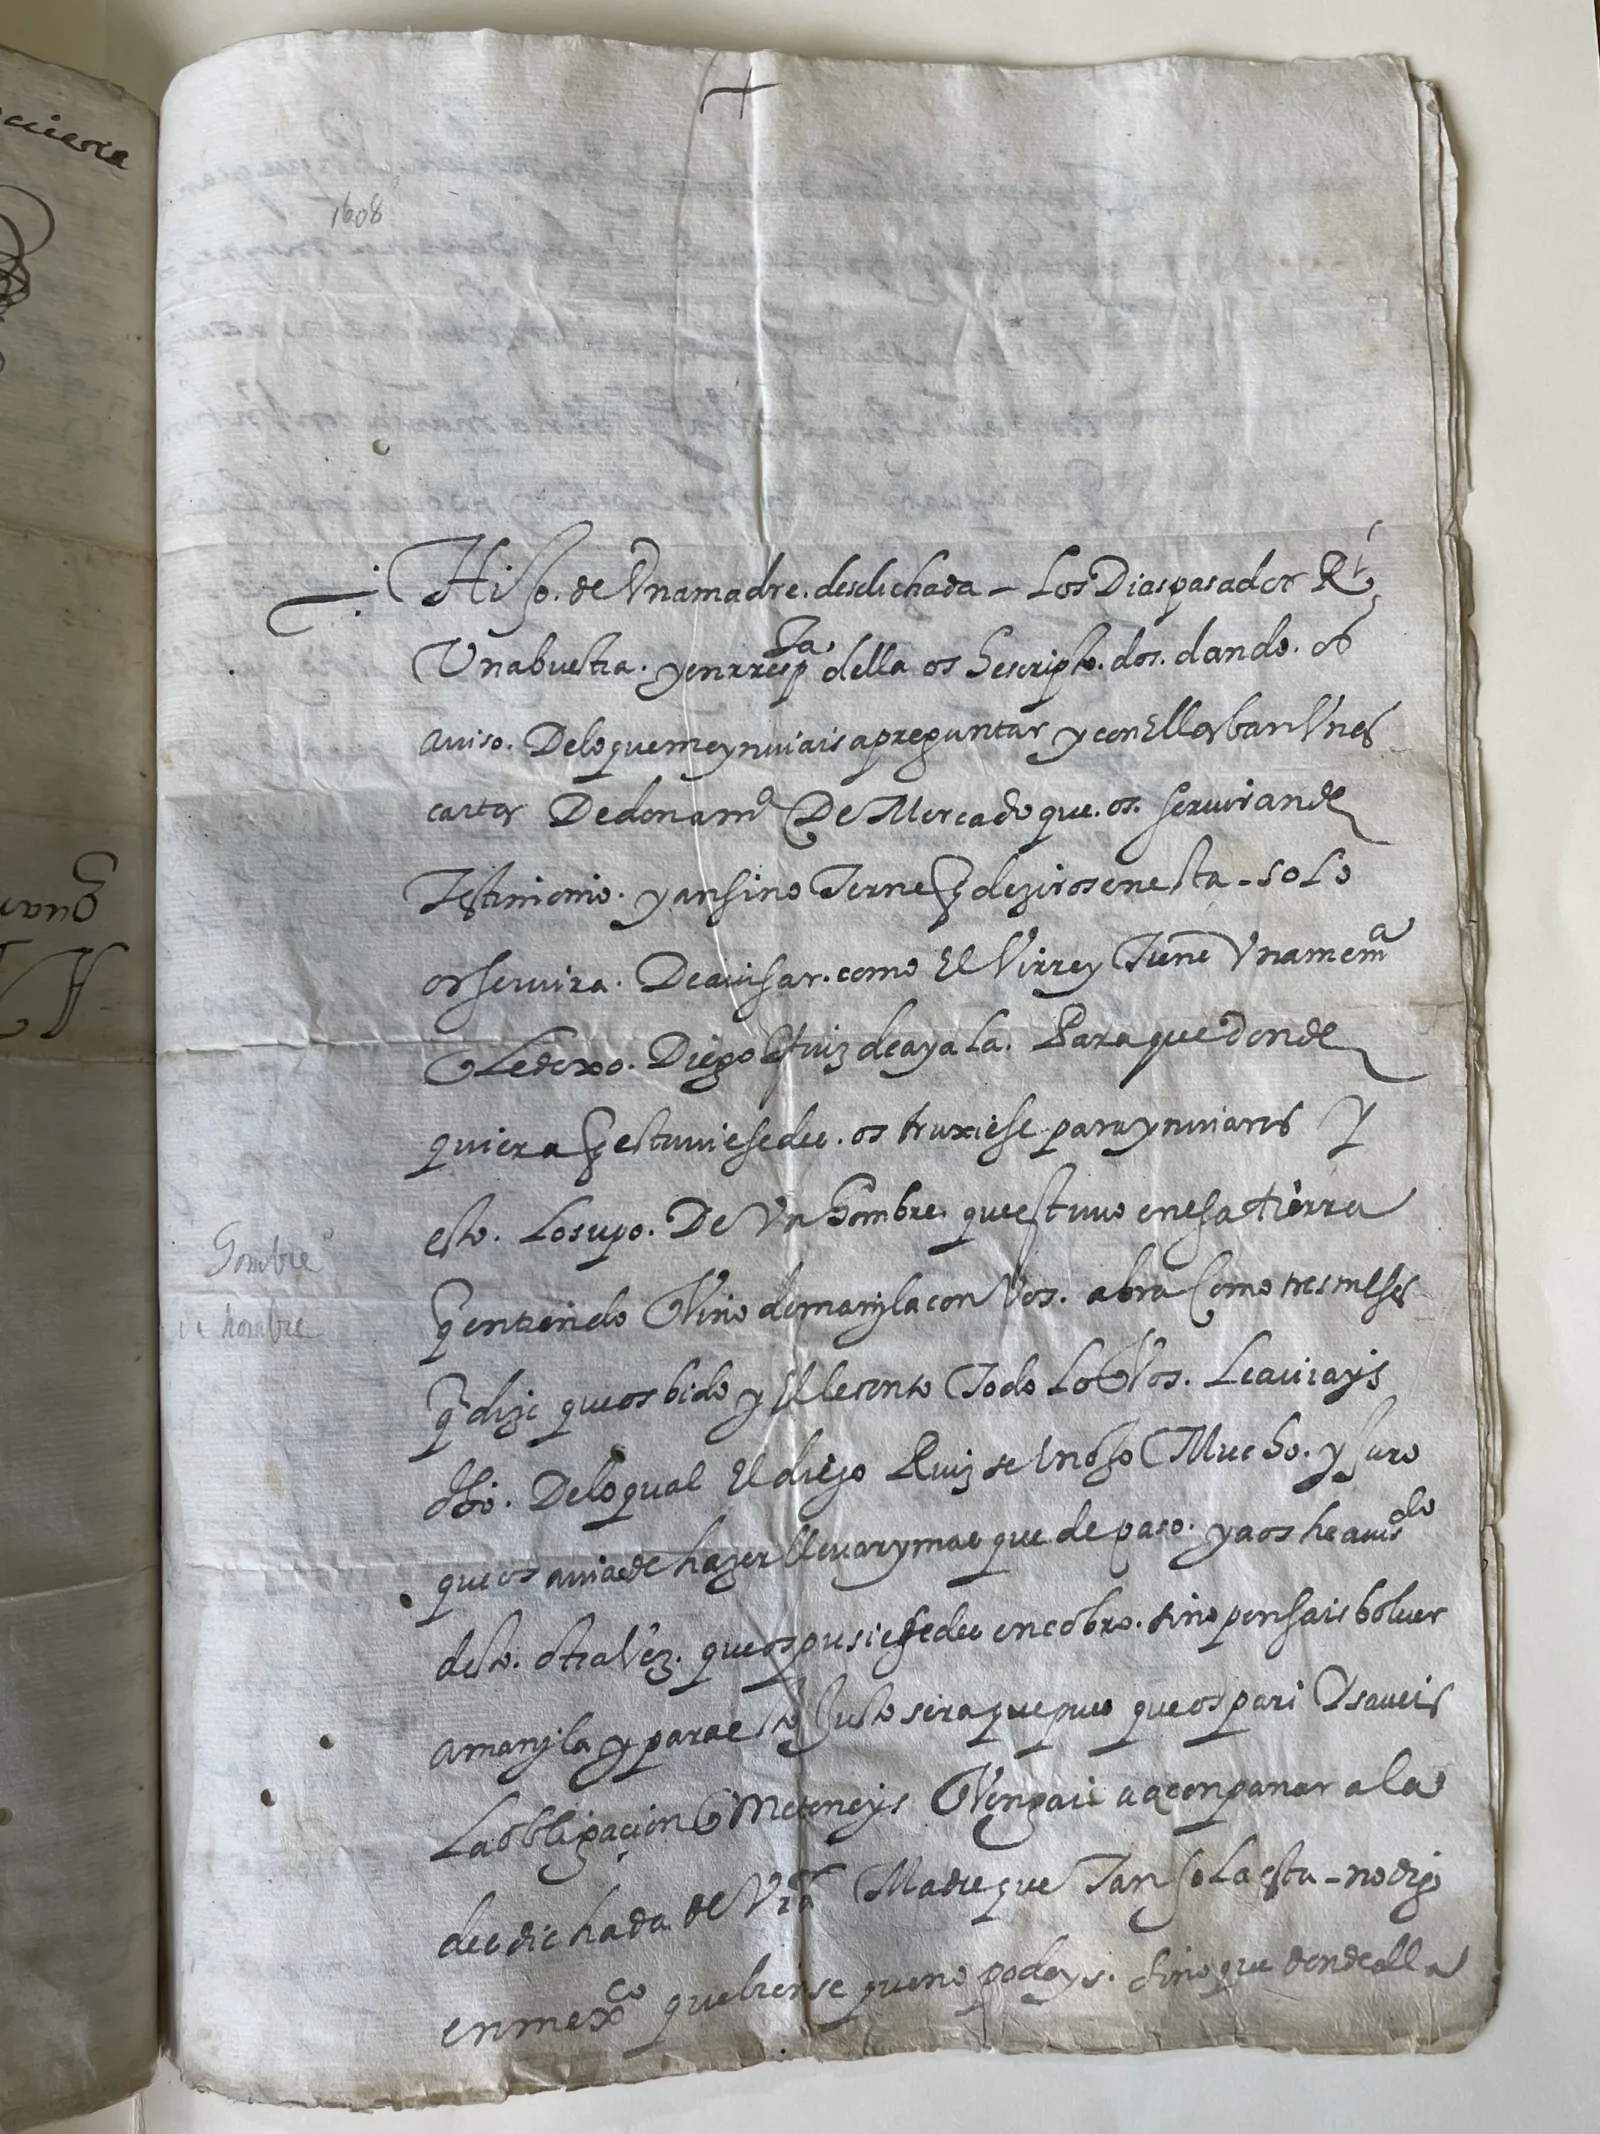 1608
Hijo. de Vna madre. desdichada – Los Dias pasados Rĩ
Vna buestra. y en rrespta della os hescripto. dos. dando. os
aviso. De lo que me ynuiais a preguntar y con Ellas ban Vnas
cartas De dona mª De Mercado que. os. seruiran de
Testimonio. y ansi no Terne q deziros en esta – solo
os seruira. De auisar. como El Virrey Tiene Vna memª
Le dexo. Diego Ruiz de ayala. Para que donde
quiera q estuuiesedes. os truxiese para ynuiaros y
esto. Lo supo. De Vn hombre que estuuo en esa tierra
q entiendo Vino de manjla con Vos. abra Como tres meses
q dize que os bido y El le conto Todo Lo q Vos. Le auiays
dho. De lo qual El diego Ruiz se Enojo Mucho. y juro
que os auia de hazer lleuar y mas que de paso. ya os he auisdo
desto. otra Vez. que os pusiesedes en cobro. si no pensais boluer
a manjla y para esto Justo sera que pues que os pari Vsaueis
La obligacion q me teneys Vengais a aconpanar a la
desdichada de Vrã Madre que Tan sola esta – no digo
en mexco que bien se que no podeys. sino que donde ella
hombre
hombre